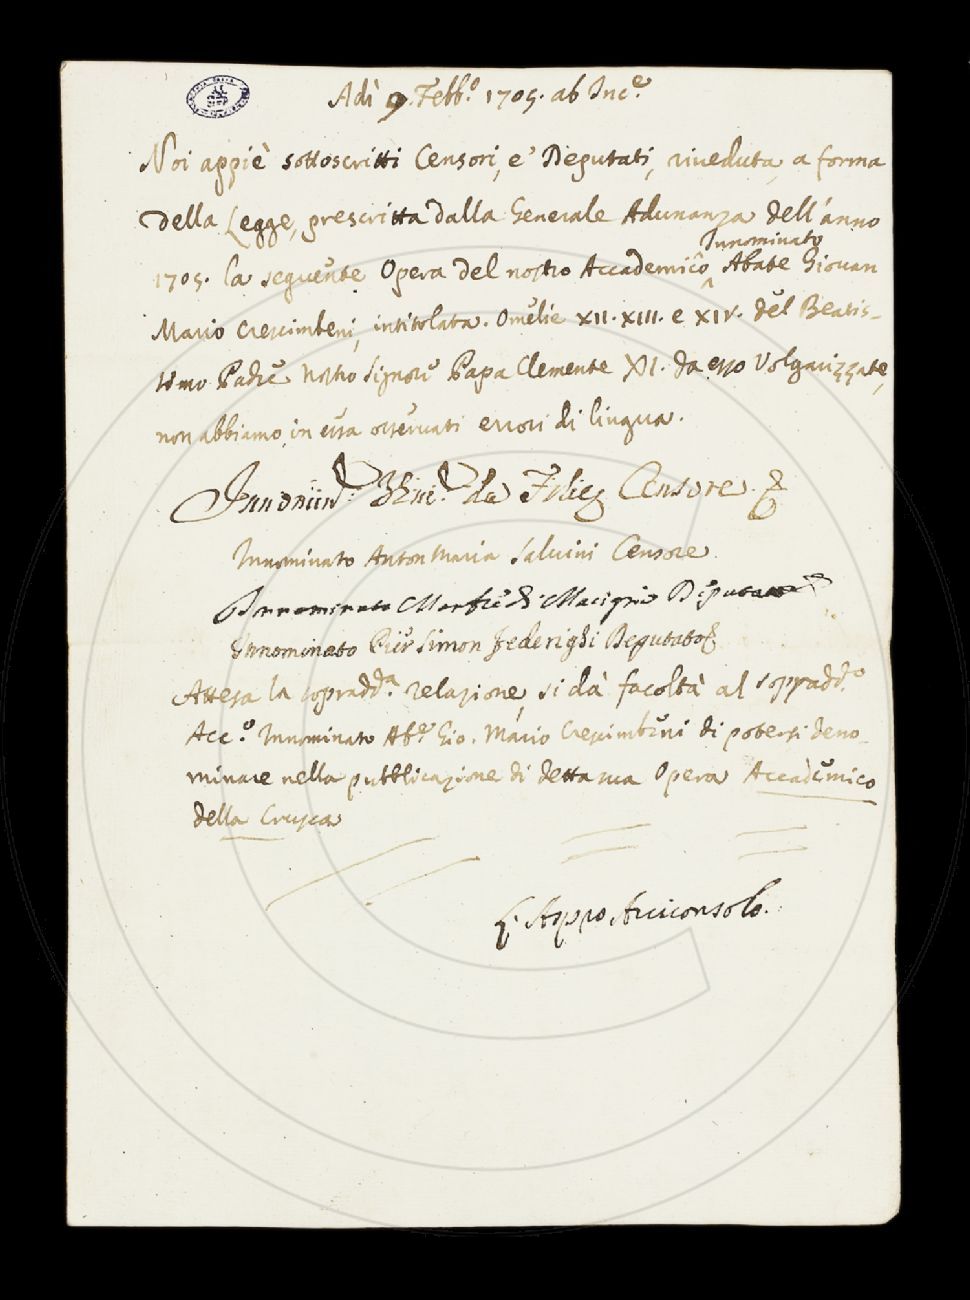 Adì 9. Febb.º 1705. ab Inc.e
Noi appiè sottoscritti Censori, e' Deputati, riveduta, a forma
della Legge, prescritta dalla Generale Adunanza dell'anno
Innominato
1705. la seguente Opera del nostro Accademico ^ Abate Giovan
Mario Crescimbeni, intitolata. Omelie XII. XIII. e XIV. del Beatis-
simo Padre Nostro Signore Papa Clemente XI. da esso Volgarizzate,
non abbiamo in essa osservati errori di lingua.
da Censore.
Innominato Anton Maria Salvini Censore
Innominato Deputato
Innominato Pier Simon Federighi Deputato
Attesa la sopradd.a relazione, si dà facoltà al sopradd.o
Acc.o Innominato Ab.e Gio. Mario Crescimbeni di potersi deno-
minare nella pubblicazione di detta sua Opera Accademico
della Crusca
L'Aspro Arciconsolo.